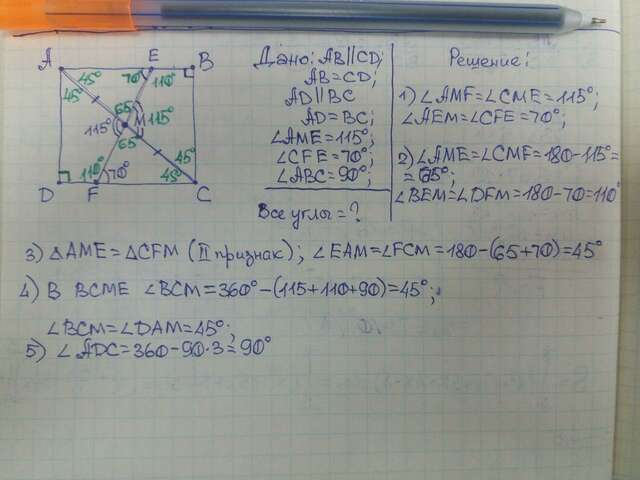 A
E
B
45°
45°
70°
110°
65
M
115°
115°
65
45°
45°
110°
70°
D
F
C
Дано: AB||CD;
AB=CD;
AD||BC
AD=BC;
∠AME=115°;
∠CFE=70°;
∠ABC=90°;
Все углы=?
Решение:
1) ∠AMF=∠CME=115°;
∠AEM=∠CFE=70°;
2) ∠AME=∠CMF=180-115°=
=65°;
∠BEM=∠DFM=180-70=110°
3) △AME=△CFM (II признак); ∠EAM=∠FCM=180-(65+70)=45°
4) В BCME ∠BCM=360°-(115+110+90)=45°;
∠BCM=∠DAM=45°;
5) ∠ADC=360-90·3=90°